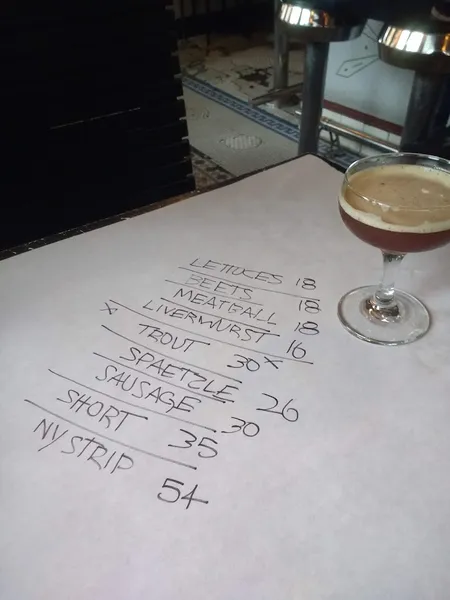 LETTUCES 18
BEETS 18
MEATBALL 18
LIVERWURST 16
X TROUT 30 X
SPAETZLE 26
SAUSAGE 30
SHORT 35
NY STRIP 54